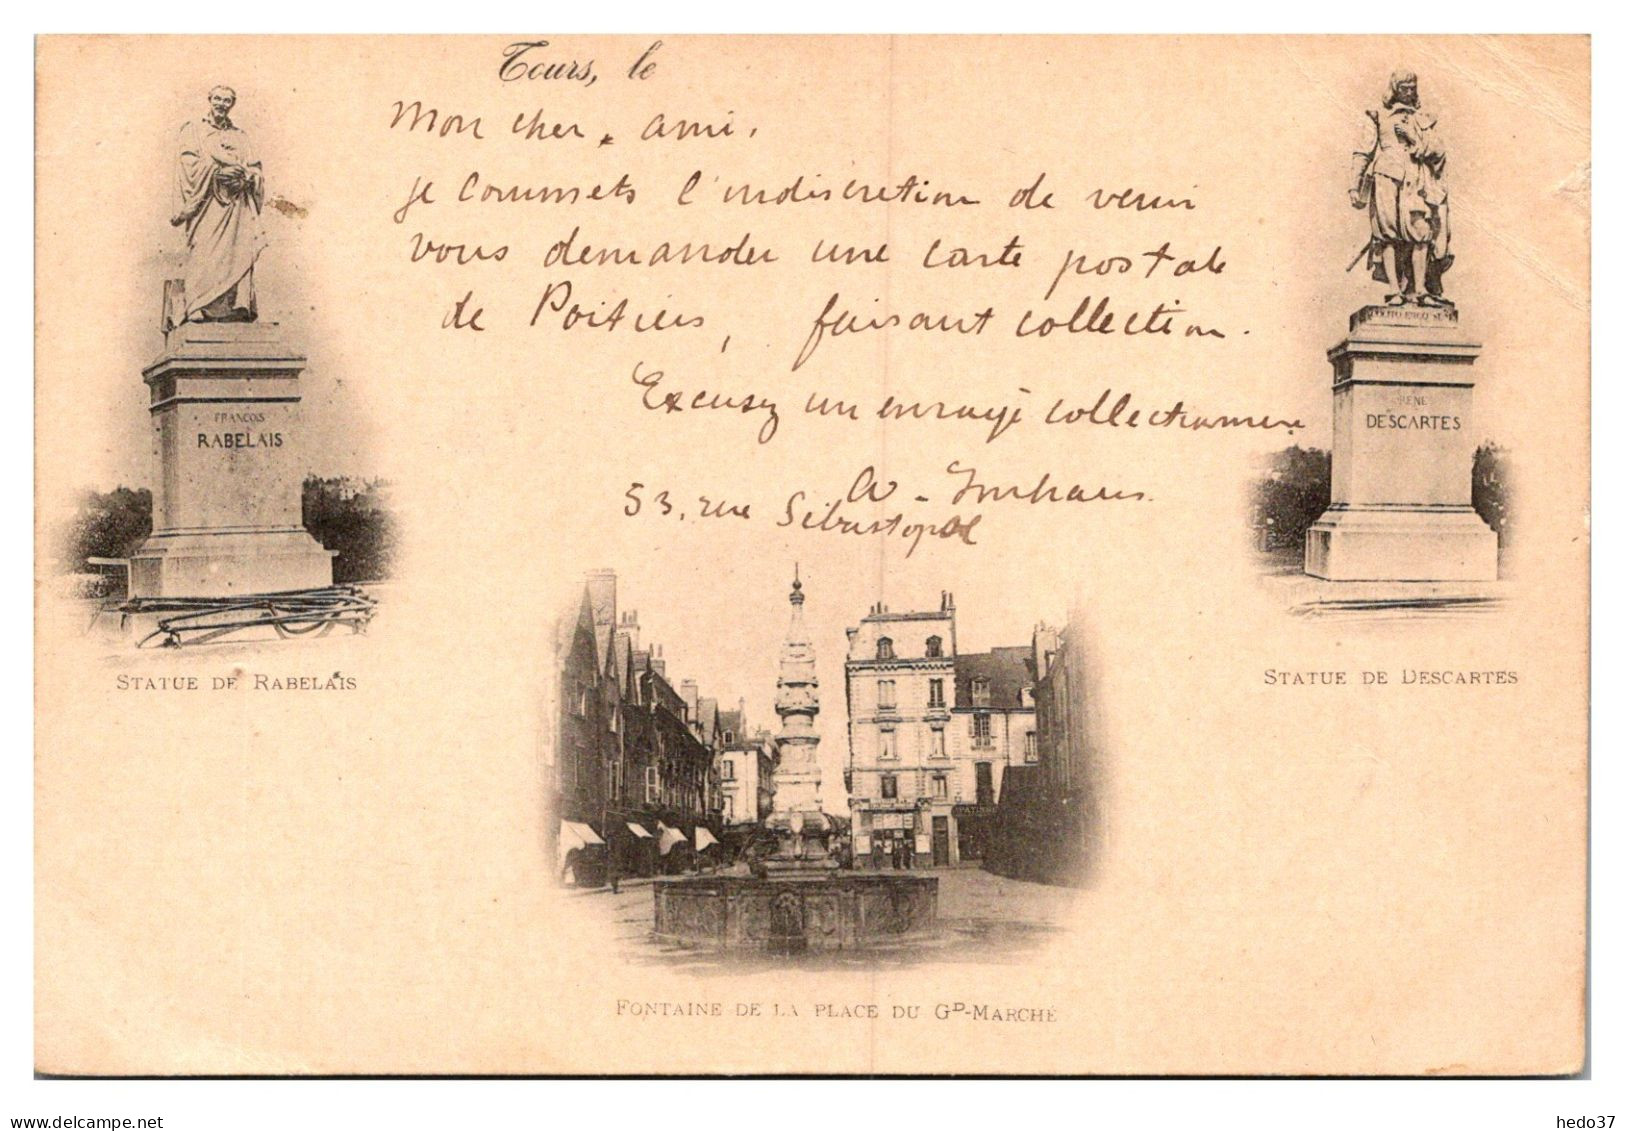 Tours, le
Mon cher ami.
je commets l'indiscretion de venir
vous demander une carte postale
de Poitiers, faisant collection.
Excusez un enragé collectionneur
53, rue Sébastopol
FRANÇOIS
RABELAIS
RENÉ
DESCARTES
STATUE DE RABELAIS
STATUE DE DESCARTES
FONTAINE DE LA PLACE DU GD-MARCHÉ
www.delcampe.net
hedo37